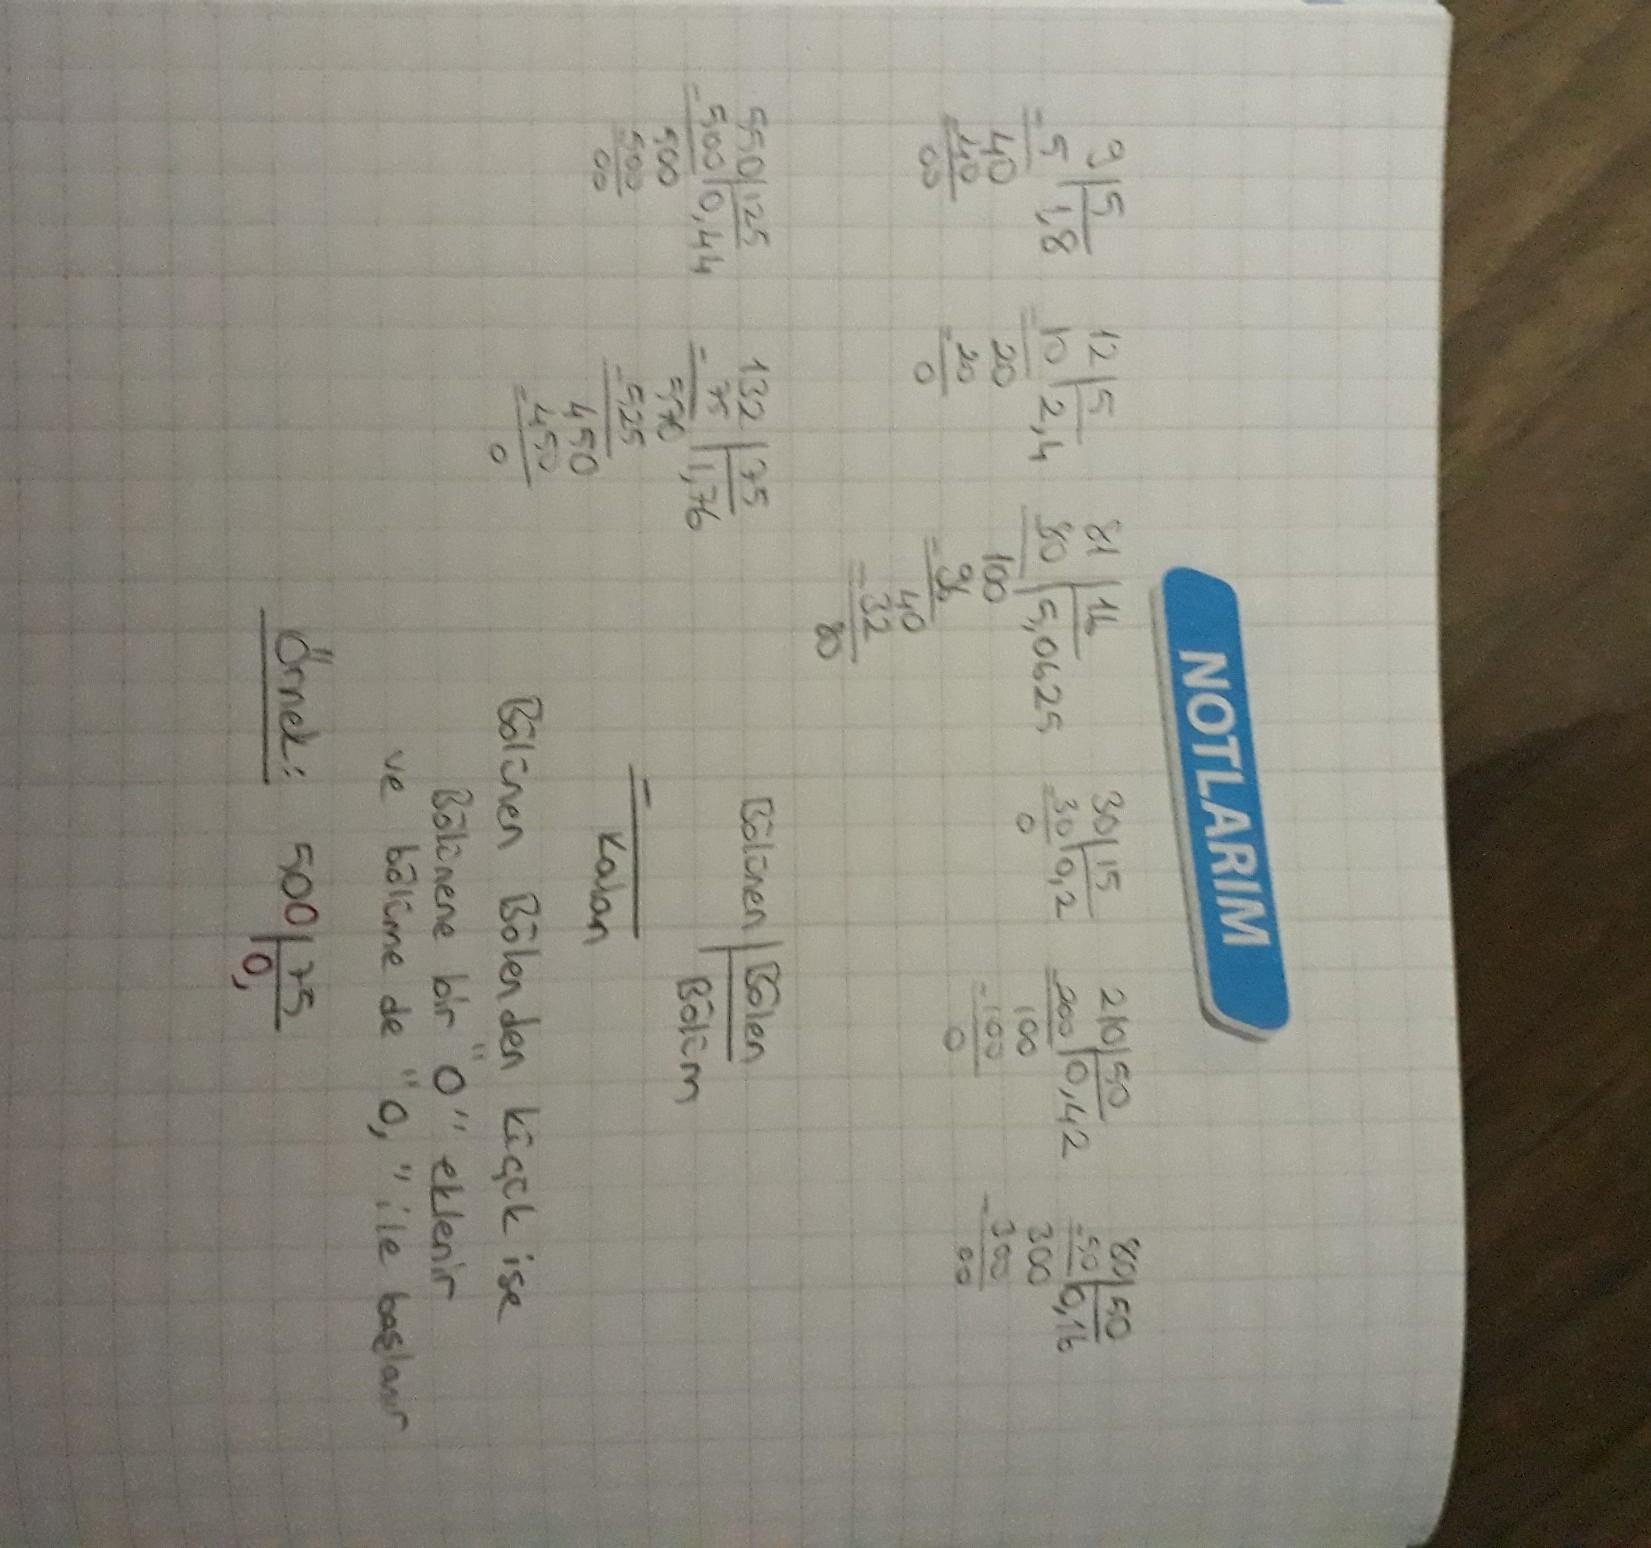 NOTLARIM
9 5 12 5 81 16 30 15 210 50 80 50
- 5 1,8 - 10 2,4 80 5,0625 - 30 0,2 - 200 0,42 - 50 0,16
40 20 100 0 100 300
- 40 - 20 - 96 - 100 - 300
00 0 40 0 00
- 32
80
550 125 132 75 Bölünen Bölen
- 500 0,44 - 75 1,76 Bölüm
500 570 -
- 500 - 525 Kalan
00 450
- 450
0
Bölünen Bölenden küçük ise
Bölünene bir "0" eklenir
ve bölüme de "0," ile başlanır
Örnek: 500 75
0,